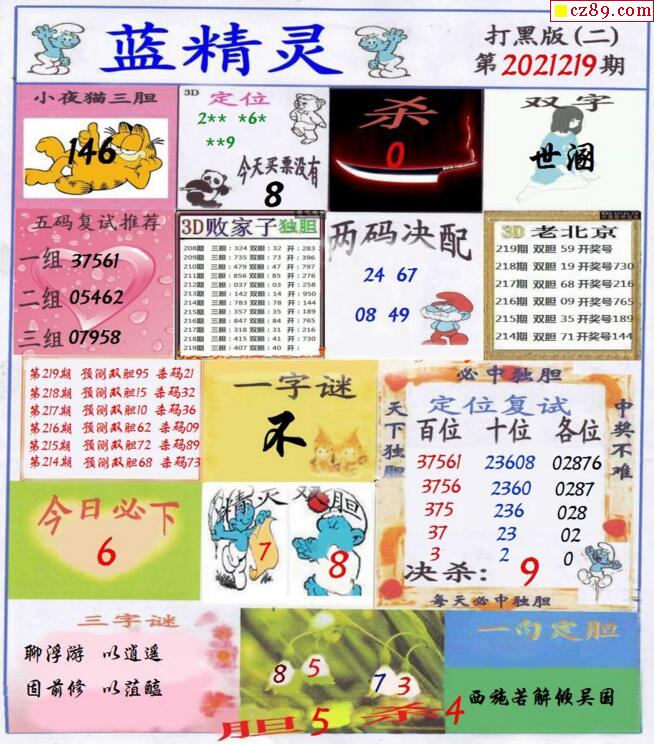 cz89.com
蓝精灵
打黑版(二)
第2021219期
小夜猫三胆
146
3D 定位
2** *6*
**9
今天买票没有
8
杀
0
双字
世涸
五码复试推荐
一组 37561
二组 05462
三组 07958
3D败家子独胆
208期 三胆:324 双胆:32 开:283
209期 三胆:735 双胆:73 开:396
210期 三胆:479 双胆:47 开:797
211期 三胆:856 双胆:85 开:276
212期 三胆:037 双胆:03 开:258
213期 三胆:142 双胆:14 开:950
214期 三胆:783 双胆:78 开:144
215期 三胆:357 双胆:35 开:189
216期 三胆:847 双胆:84 开:765
217期 三胆:318 双胆:31 开:216
218期 三胆:415 双胆:41 开:730
219期 三胆:407 双胆:40 开:
两码决配
24 67
08 49
3D 老北京
219期 双胆 59 开奖号
218期 双胆 19 开奖号730
217期 双胆 68 开奖号216
216期 双胆 09 开奖号765
215期 双胆 35 开奖号189
214期 双胆 71 开奖号144
第219期 预测双胆95 杀码21
第218期 预测双胆15 杀码32
第217期 预测双胆10 杀码36
第216期 预测双胆62 杀码09
第215期 预测双胆72 杀码89
第214期 预测双胆68 杀码73
一字谜
不
必中独胆
天下独胆
中奖不难
定位复试
百位 十位 各位
37561 23608 02876
3756 2360 0287
375 236 028
37 23 02
3 2 0
决杀: 9
每天必中独胆
今日必下
6
精灵双胆
7 8
三字谜
聊浮游 以逍遥
固前修 以菹醢
8 5 7 3
胆5 杀4
一句定胆
西施若解倾吴国